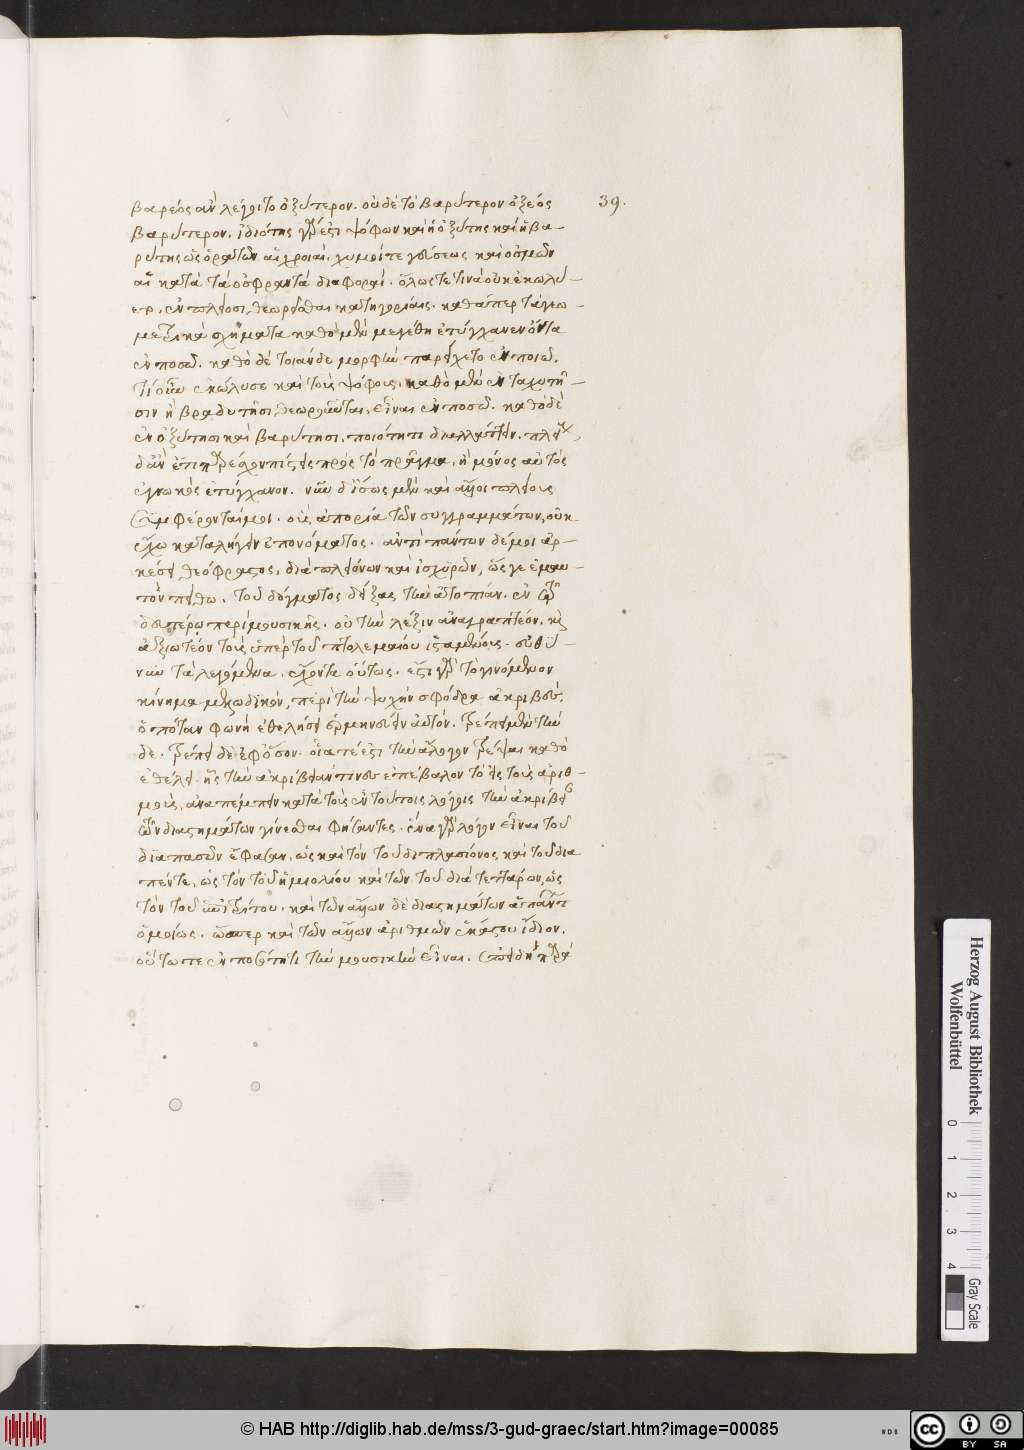 βαρέος ἂν λέγοιτο ὀξύτερον. οὐδὲ τὸ βαρύτερον ὀξέος
39.
βαρύτερον. ἰδιότης γάρ ἐστι ψόφων καὶ ἡ ὀξύτης καὶ ἡ βα-
ρύτης ὡς ὁρατῶν αἱ χροιαί. χυμοί τε γεύσεως καὶ ὀσμῶν
αἱ κατὰ τὰ ὀσφραντὰ διαφοραί. ὅλως τε τινὰ οὐκ ἐκώλυ-
εν πλείοσι θεωρεῖσθαι κατηγορίαις. καθάπερ τὰ γεω-
μετρικὰ σχήματα καθὸ μὲν μεγέθη ἐτύγχανεν ὄντα
ἐν ποσῷ. καθὸ δὲ τοιάνδε μορφὴν παρείχετο ἐν ποιῷ.
τί οὖν ἐκώλυσε καὶ τοὺς ψόφους. καθὸ μὲν ἐν ταχυτῆ-
σιν ἢ βραδυτῆσι θεωροῦνται, εἶναι ἐν ποσῷ. καθὸ δὲ
ἐν ὀξύτησι καὶ βαρύτησι. ποιότητι διαλλάττειν.
πρὸς τὸ πρᾶγμα, ἢ μόνος αὐτὸς
ἐγνωκὼς ἐτύγχανον. νῦν δ' ἴσως μὲν καὶ ἄλλοι πλείους
συμφέρονταί μοι. οὓς ἀπορίᾳ τῶν συγγραμμάτων, οὐκ
ἔχω καταλήγειν ἐπ' ὀνόματος. ἀντὶ πάντων δέ μοι ἀρ-
κέσει θεόφραστος, διὰ πλειόνων καὶ ἰσχυρῶν, ὥς γε ἐμαυ-
τὸν πείθω. τοῦ δόγματος δείξας τὴν ἀτοπίαν. ἐν τῷ
δευτέρῳ περὶ μουσικῆς. οὗ τὴν λέξιν ἀναγραπτέον. καὶ
ἀξιωτέον τοὺς ὑπὲρ τοῦ πτολεμαίου ἱσταμένους.
τὰ λεγόμενα. ἔχοντα οὕτως. ἔστι γὰρ τὸ γινόμενον
κίνημα μελῳδικόν, περὶ τὴν ψυχὴν σφόδρα ἀκριβές.
ὁπόταν φωνῇ ἐθελήσῃ ἑρμηνεύειν αὐτόν. τρέπει μὲν τὴν
δε. τρέπει δὲ ἐφ' ὅσον. οἵα τέ ἐστι τὴν ἄλογον τρέψαι καθὸ
ἐθέλει. ἧς τὴν ἀκρίβειάν τινες ἐπέβαλον τὸ εἰς τοὺς ἀριθ-
μούς, ἀναπέμπειν κατὰ τοὺς ἐν τούτοις λόγους τὴν ἀκρίβει
τῶν διαστημάτων γίνεσθαι φήσαντες. ἕνα γὰρ λόγον εἶναι τοῦ
διαπασῶν ἔφασαν, ὡς καὶ τὸν τοῦ διπλασίονος καὶ τοῦ δια
πέντε, ὡς τὸν τοῦ ἡμιολίου καὶ τῶν τοῦ διὰ τεττάρων, ὡς
τὸν τοῦ ἐπιτρίτου. καὶ τῶν ἄλλων δὲ διαστημάτων ἁπάντ
ὁμοίως. ὥσπερ καὶ τῶν ἄλλων ἀριθμῶν ἑκάστου ἴδιον.
οὕτως τε ἐν ποσότητι τὴν μουσικὴν εἶναι. ἐπειδὴ παρὰ
Herzog August Bibliothek
Wolfenbüttel
0 1 2 3 4
Gray Scale
© HAB http://diglib.hab.de/mss/3-gud-graec/start.htm?image=00085
WDB
cc BY SA